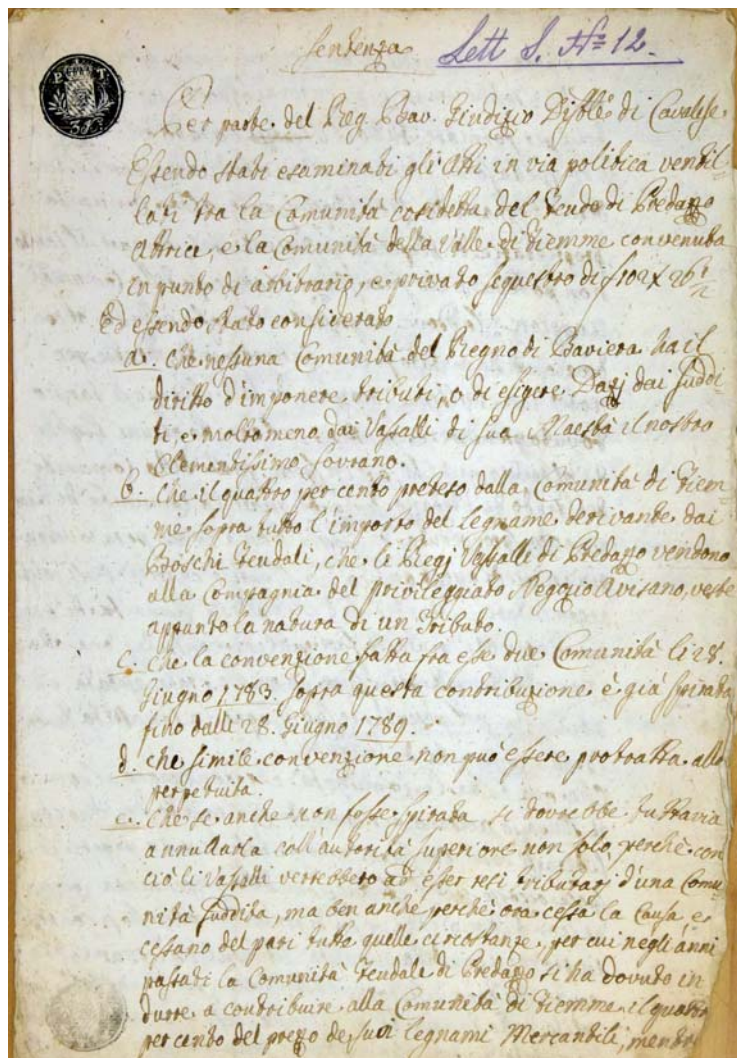 Sentenza
Lett S. N= 12.
P T
Per parte del Reg. Bav. Giudizio Distle di Cavalese
Essendo stati esaminati gli Atti in via politica ventil-
lati tra la Comunità cosidetta del Feudo di Predazzo
Attrice, e la Comunità della Valle di Fiemme convenuta
in punto di arbitrario, e privato sequestro di
Ed essendo stato considerato
a. che nessuna Comunità del Regno di Baviera ha il
diritto d'imponere tributi, o di esigere Dazj dai suddi-
ti, e molto meno dai Vassalli di sua Maestà il nostro
Clementissimo Sovrano.
b. che il quattro per cento preteso dalla Comunità di Fiem-
me sopra tutto l'importo del Legname derivante dai
Boschi Feudali, che li Regj Vassalli di Predazzo vendono
alla Compagnia del privileggiato Negozio Avisano, veste
appunto la natura di un Tributo.
c. che la convenzione fatta fra esse due Comunità li 28.
Giugno 1783. sopra questa contribuzione è già spirata
fino dalli 28. Giugno 1789.
d. che simile convenzione non può essere protratta alla
perpetuità.
e. che se anche non fosse spirata, si dovrebbe tuttavia
annullarla coll'autorità superiore non solo perchè con
ciò li Vassalli verrebbero ad esser resi tributarj d'una Comu-
nità suddita, ma ben anche perchè ora cessa la Causa e
cessano del pari tutte quelle circostanze, per cui negli anni
passati la Comunità Feudale di Predazzo si ha dovuto in
durre a contribuire alla Comunità di Fiemme il quattro
per cento del prezzo de suoi legnami Mercantili, mentre